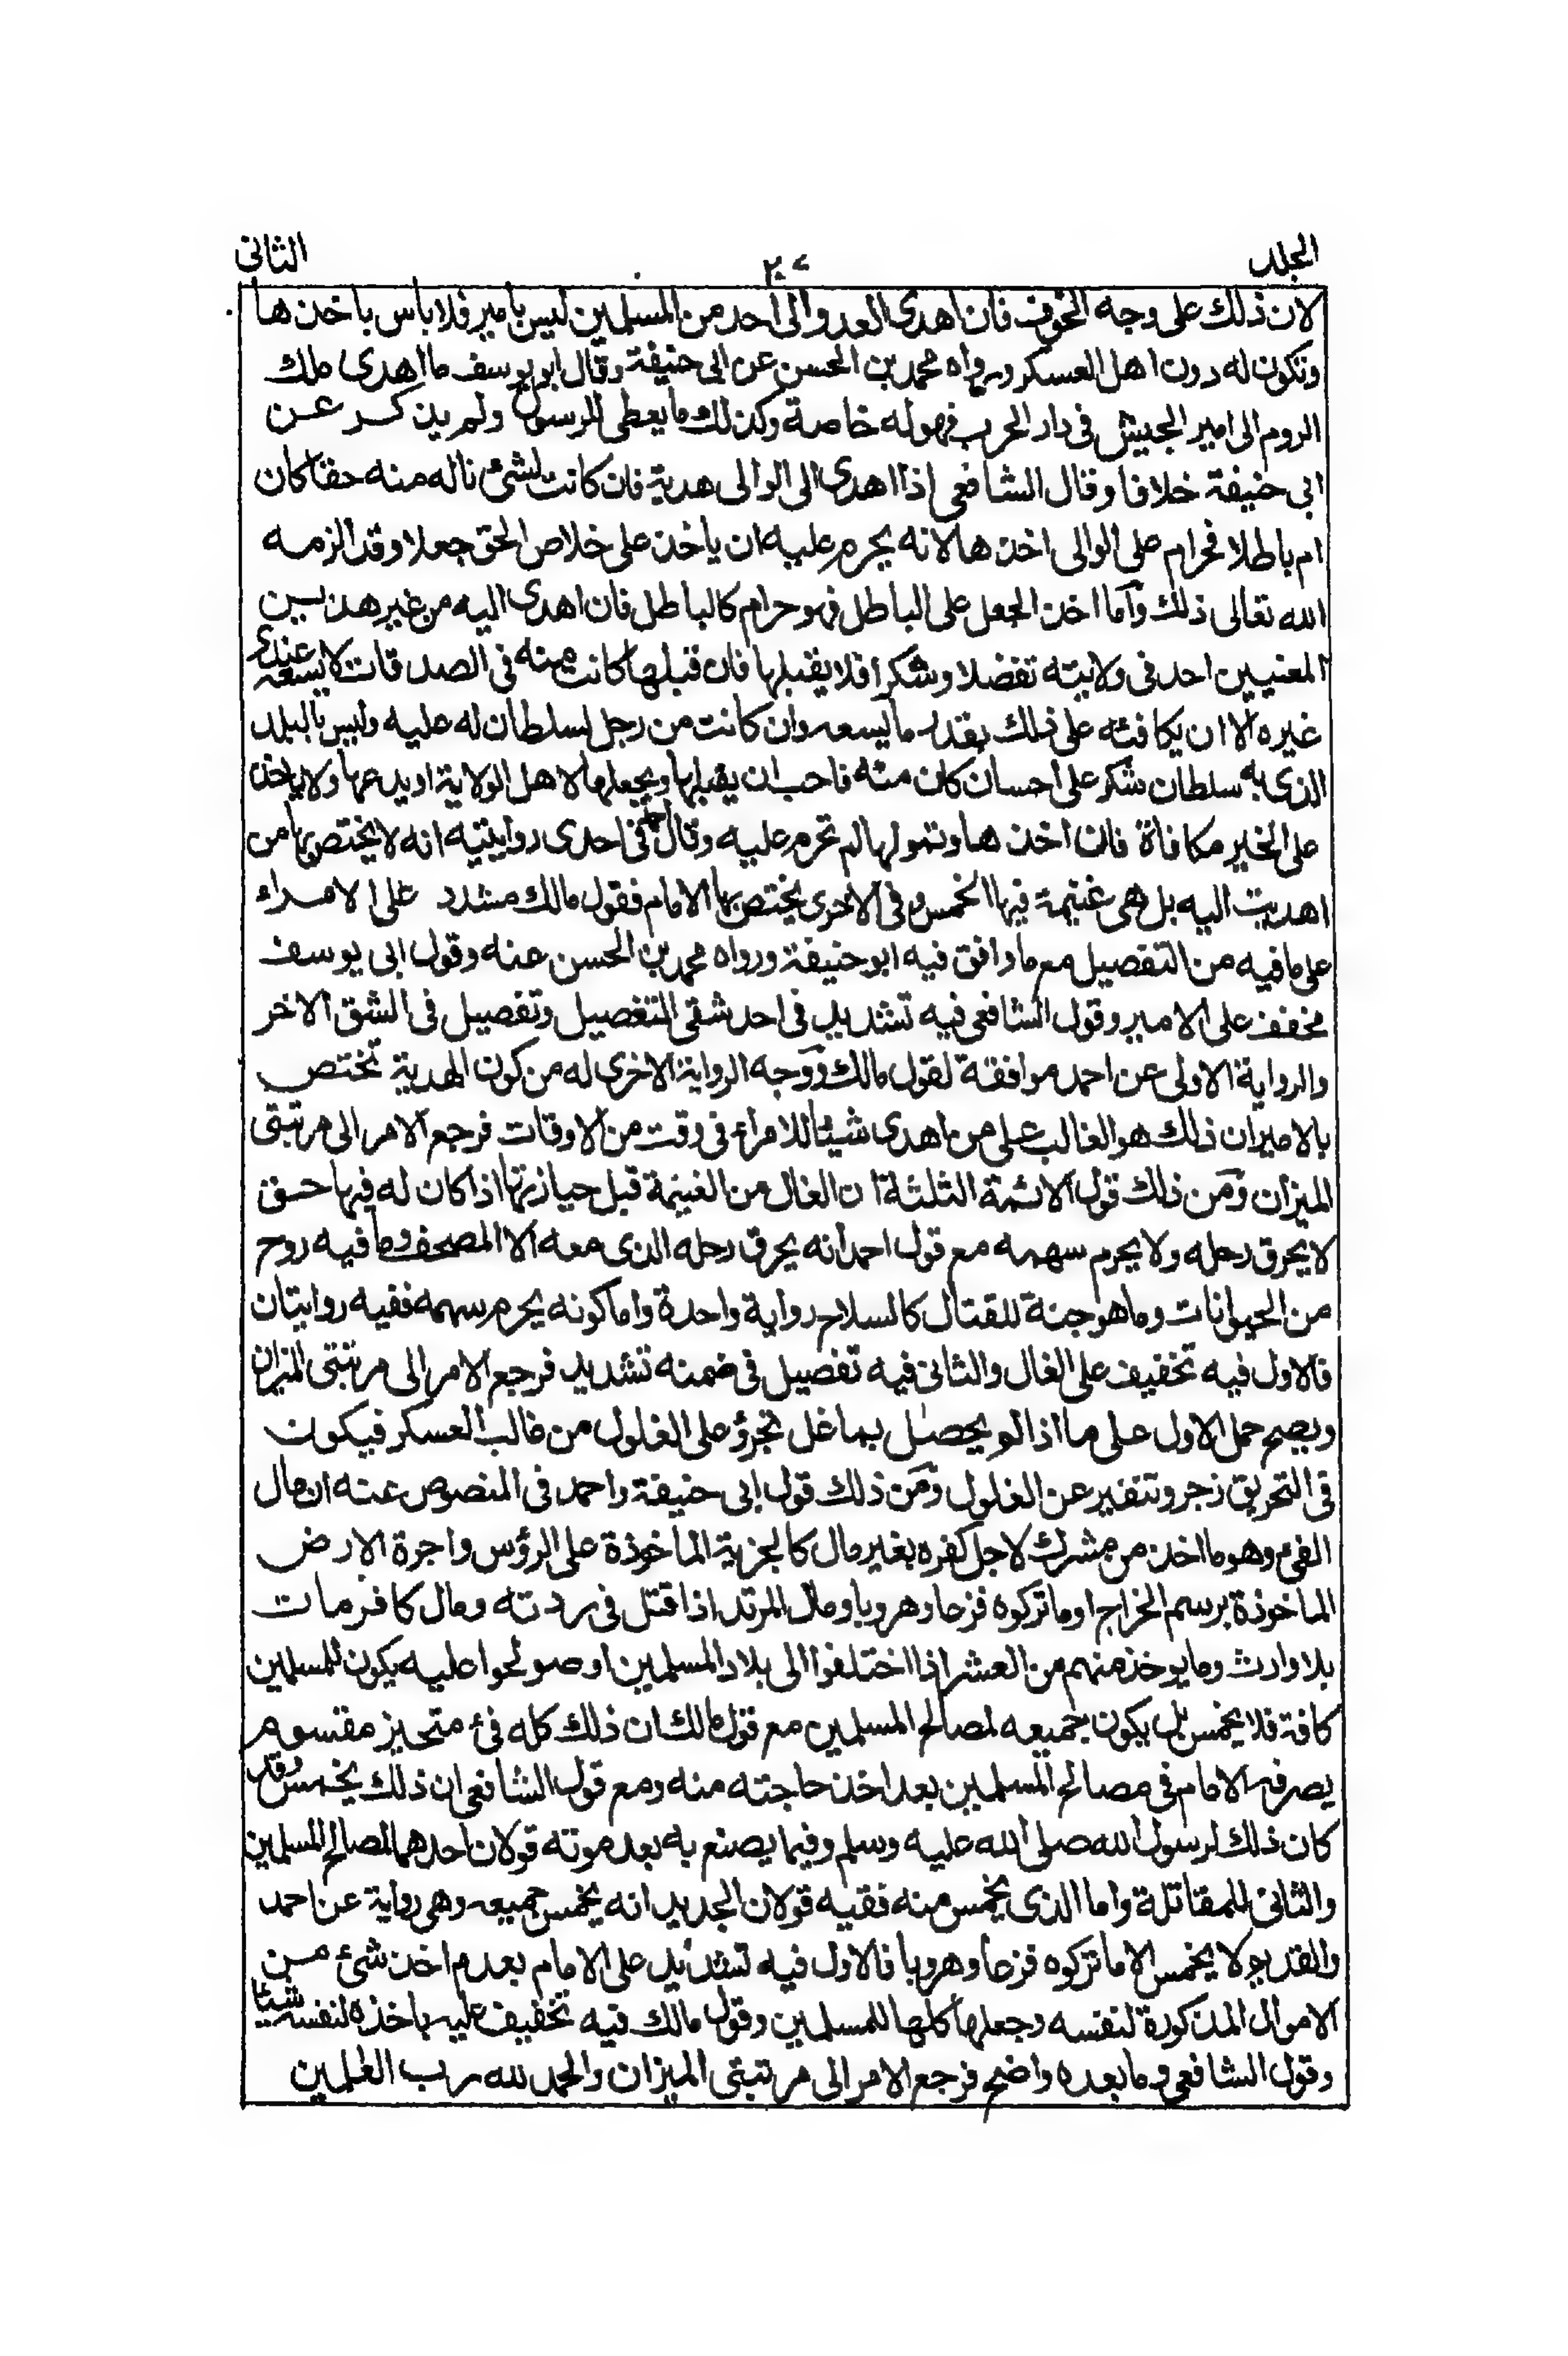 المجلد ٢٠٧ الثانى
لان ذلك على وجه الخوف فان اهدى العدو الى احد من المسلمين ليس بامير فلا باس باخذها
وتكون له دون اهل العسكر ورواه محمد بن الحسن عن ابى حنيفة وقال ابو يوسف ما اهدى ملك
الروم الى امير الجيش فى دار الحرب فهو له خاصة وكذلك ما يعطى الرسول ولم يذكر عن
ابى حنيفة خلافا وقال الشافعى اذا اهدى الى الوالى هدية فان كانت لشئ ناله منه حقا كان
ام باطلا فحرام على الوالى اخذها لانه يحرم عليه ان ياخذ على خلاص الحق جعلا وقد الزمه
الله تعالى ذلك وآما اخذ الجعل على الباطل فهو حرام كالباطل فان اهدى اليه من غير هذين
المعنيين احد فى ولايته تفضلا وشكرا فلا يقبلها فان قبلها كانت منه فى الصدقات لا يسعه عندى
غيره الا ان يكافئه على ذلك بقدر ما يسعه وان كانت من رجل لسلطان له عليه وليس بالبلد
الذى به سلطان شكر على احسان كان منه فاحب ان يقبلها ويجعلها لاهل الولاية او يدعها ولا ياخذ
على الخير مكافاة فان اخذها وتمولها لم تحرم عليه وقال احمد فى احدى روايتيه انه لا يختص بها من
اهديت اليه بل هى غنيمة فيها الخمس وفى الاخرى يختص بها الامام فقول مالك مشدد على الامراء
على ما فيه من التفصيل مع ما وافق فيه ابو حنيفة ورواه محمد بن الحسن عنه وقول ابى يوسف
مخفف على الامير وقول الشافعى فيه تشديد فى احد شقى التفصيل وتفصيل فى الشق الاخر
والرواية الاولى عن احمد موافقة لقول مالك ووجه الرواية الاخرى له من كون الهدية تختص
بالامير ان ذلك هو الغالب على من اهدى شيئا للامراء فى وقت من الاوقات فرجع الامر الى مرتبتى
الميزان ومن ذلك قول الائمة الثلثة ان الغال من الغنيمة قبل حيازتها اذا كان له فيها حق
لا يحرق رحله ولا يحرم سهمه مع قول احمد انه يحرق رحله الذى معه الا المصحف وما فيه روح
من الحيوانات وما هو جنة للقتال كالسلاح رواية واحدة واما كونه يحرم سهمه ففيه روايتان
فالاول فيه تخفيف على الغال والثانى فيه تفصيل فى ضمنه تشديد فرجع الامر الى مرتبتى الميزان
ويصح حمل الاول على ما اذا لم يحصل بما غل تجرؤ على الغلول من غالب العسكر فيكون
فى التحريق زجر وتنفير عن الغلول ومن ذلك قول ابى حنيفة واحمد فى المنصوص عنه ان مال
الفئ وهو ما اخذ من مشرك لاجل كفره بغير مال كالجزية الماخوذة على الرؤس واجرة الارض
الماخوذة برسم الخراج او ما تركوه فزعا وهروبا ومال المرتد اذا قتل فى ردته ومال كافر مات
بلا وارث وما يوخذ منهم من العشر اذا اختلفوا الى بلاد المسلمين او صولحوا عليه يكون للمسلمين
كافة فلا يخمس بل يكون جميعه لمصالح المسلمين مع قول مالك ان ذلك كله فئ متحيز مقسوم
يصرفه الامام فى مصالح المسلمين بعد اخذ حاجته منه ومع قول الشافعى ان ذلك يخمس وقد
كان ذلك لرسول الله صلى الله عليه وسلم وفيما يصنع به بعد موته قولان احدهما لمصالح المسلمين
والثانى للمقاتلة واما الذى يخمس منه ففيه قولان الجديد انه يخمس جميعه وهى رواية عن احمد
والقديم لا يخمس الا ما تركوه فزعا وهروبا فالاول فيه تشديد على الامام بعدم اخذ شئ من
الاموال المذكورة لنفسه وجعلها كلها للمسلمين وقول مالك فيه تخفيف عليه باخذه لنفسه شيئا
وقول الشافعى وما بعده واضح فرجع الامر الى مرتبتى الميزان والحمد لله رب العلمين